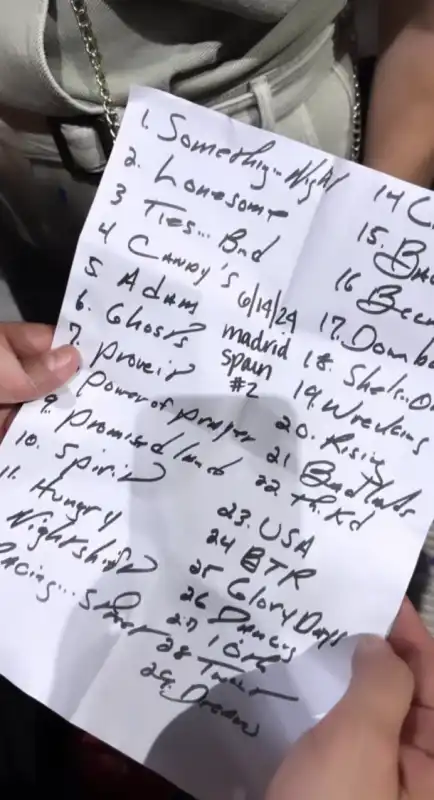 1. Somethin.. Night
2. Lonesome
3 Ties... Bnd
4 Candy's
5. Adam
6. Ghosts
7. Proveit
Power of prayer
9. Promised land
10. Spirit
11. Hungry
Nightshift
Racing... street
6/14/24
madrid
spain
#2
14 C
15. Ba
16 Becu
17. Dom
18. Shels.. O
19. Wrecking
20. Rising
21 Badlands
22 Th. Rd
23. USA
24 BTR
25 Glory Days
26 Dancing
27 10th
28 Twist
29. Dream